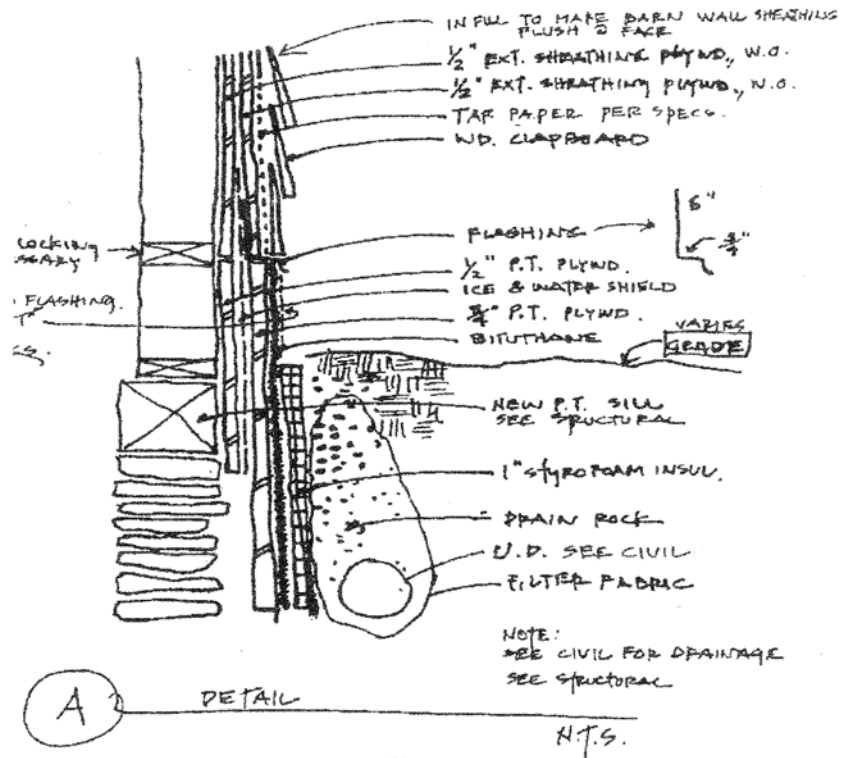 INFILL TO MAKE BARN WALL SHEATHING
FLUSH @ FACE
1/2" EXT. SHEATHING PLYWD., W.O.
1/2" EXT. SHEATHING PLYWD., W.O.
TAR PAPER PER SPECS.
WD. CLAPBOARD
FLASHING
6"
3/4"
LOCKING
SSARY
1/2" P.T. PLYWD.
ICE & WATER SHIELD
FLASHING.
3/4" P.T. PLYWD.
BITUTHANE
VARIES
GRADE
NEW P.T. SILL
SEE STRUCTURAL
1" STYROFOAM INSUL.
DRAIN ROCK
U.D. SEE CIVIL
FILTER FABRIC
NOTE:
SEE CIVIL FOR DRAINAGE
SEE STRUCTURAL
A
DETAIL
N.T.S.